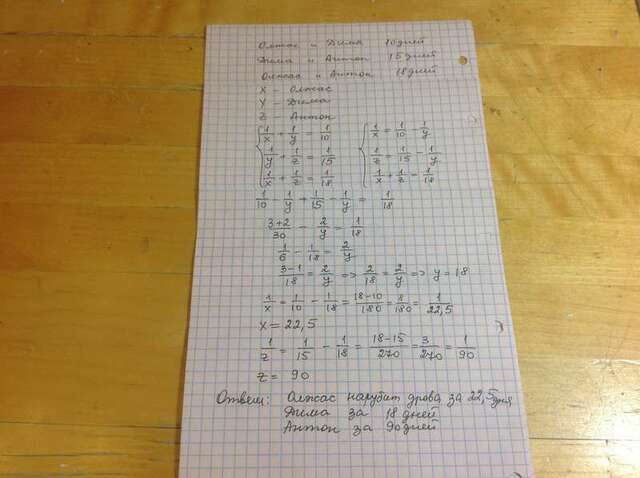 Олжас и Дима 10 дней
Дима и Антон 15 дней
Олжас и Антон 18 дней
X - Олжас
Y - Дима
Z - Антон
1/x + 1/y = 1/10   1/x = 1/10 - 1/y
1/y + 1/z = 1/15   1/z = 1/15 - 1/y
1/x + 1/z = 1/18   1/x + 1/z = 1/18
1/10 - 1/y + 1/15 - 1/y = 1/18
3+2/30 - 2/y = 1/18
1/6 - 1/18 = 2/y
3-1/18 = 2/y => 2/18 = 2/y => y = 18
1/x = 1/10 - 1/18 = 18-10/180 = 8/180 = 1/22,5
x = 22,5
1/z = 1/15 - 1/18 = 18-15/270 = 3/270 = 1/90
z = 90
Ответ: Олжас нарубит дрова за 22,5 дня
Дима за 18 дней
Антон за 90 дней